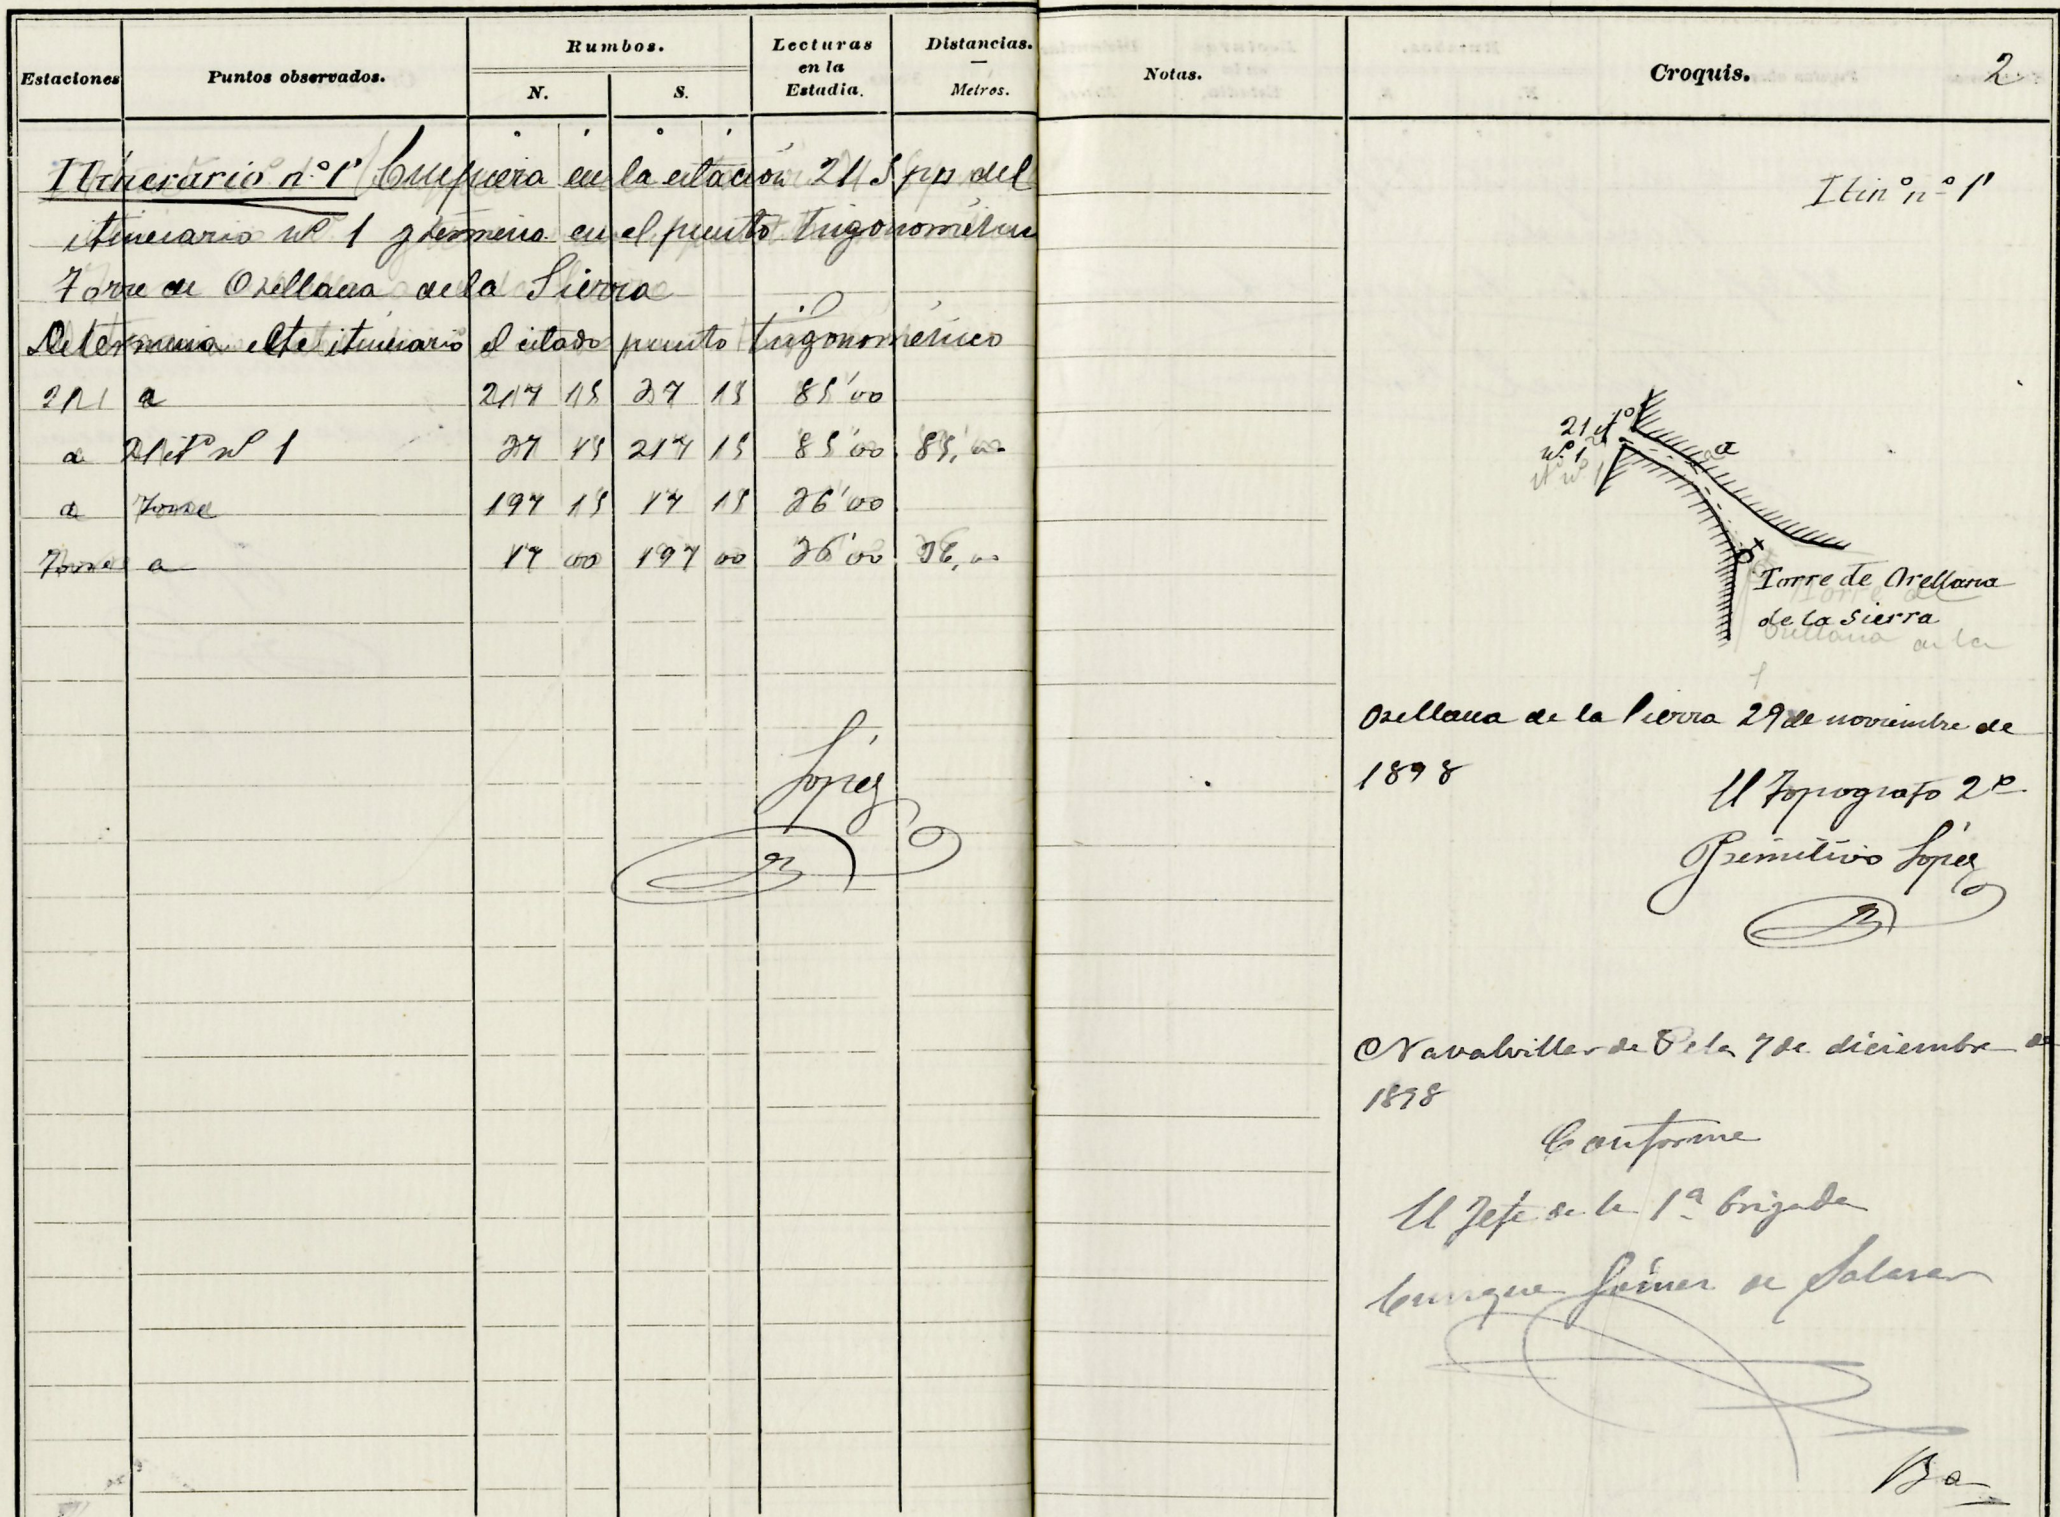 Estaciones Puntos observados. Rumbos. N. S. Lecturas en la Estadia. Distancias. — Metros. Notas. Croquis. 2
Itinerario nº 1' Empieza en la estación 21 del
itinerario nº 1 y termina en el punto trigonométrico
Torre de Orellana de la Sierra
Determina este itinerario el citado punto trigonométrico
21 a 217 15 37 15 85'00
a 21 itº nº 1 37 15 217 15 85'00 85,00
a Torre 197 15 17 15 36'00
Torre a 17 00 197 00 36'00 36,00
López
Itinº nº 1'
21 itº
nº 1
a
Torre de Orellana
de la Sierra
Orellana de la Sierra 29 de noviembre de
1898
El Topografo 2º
Primitivo López
Navalvillar de Pela 7 de diciembre de
1898
Conforme
El Jefe de la 1ª brigada
Enrique Gómez de Salazar